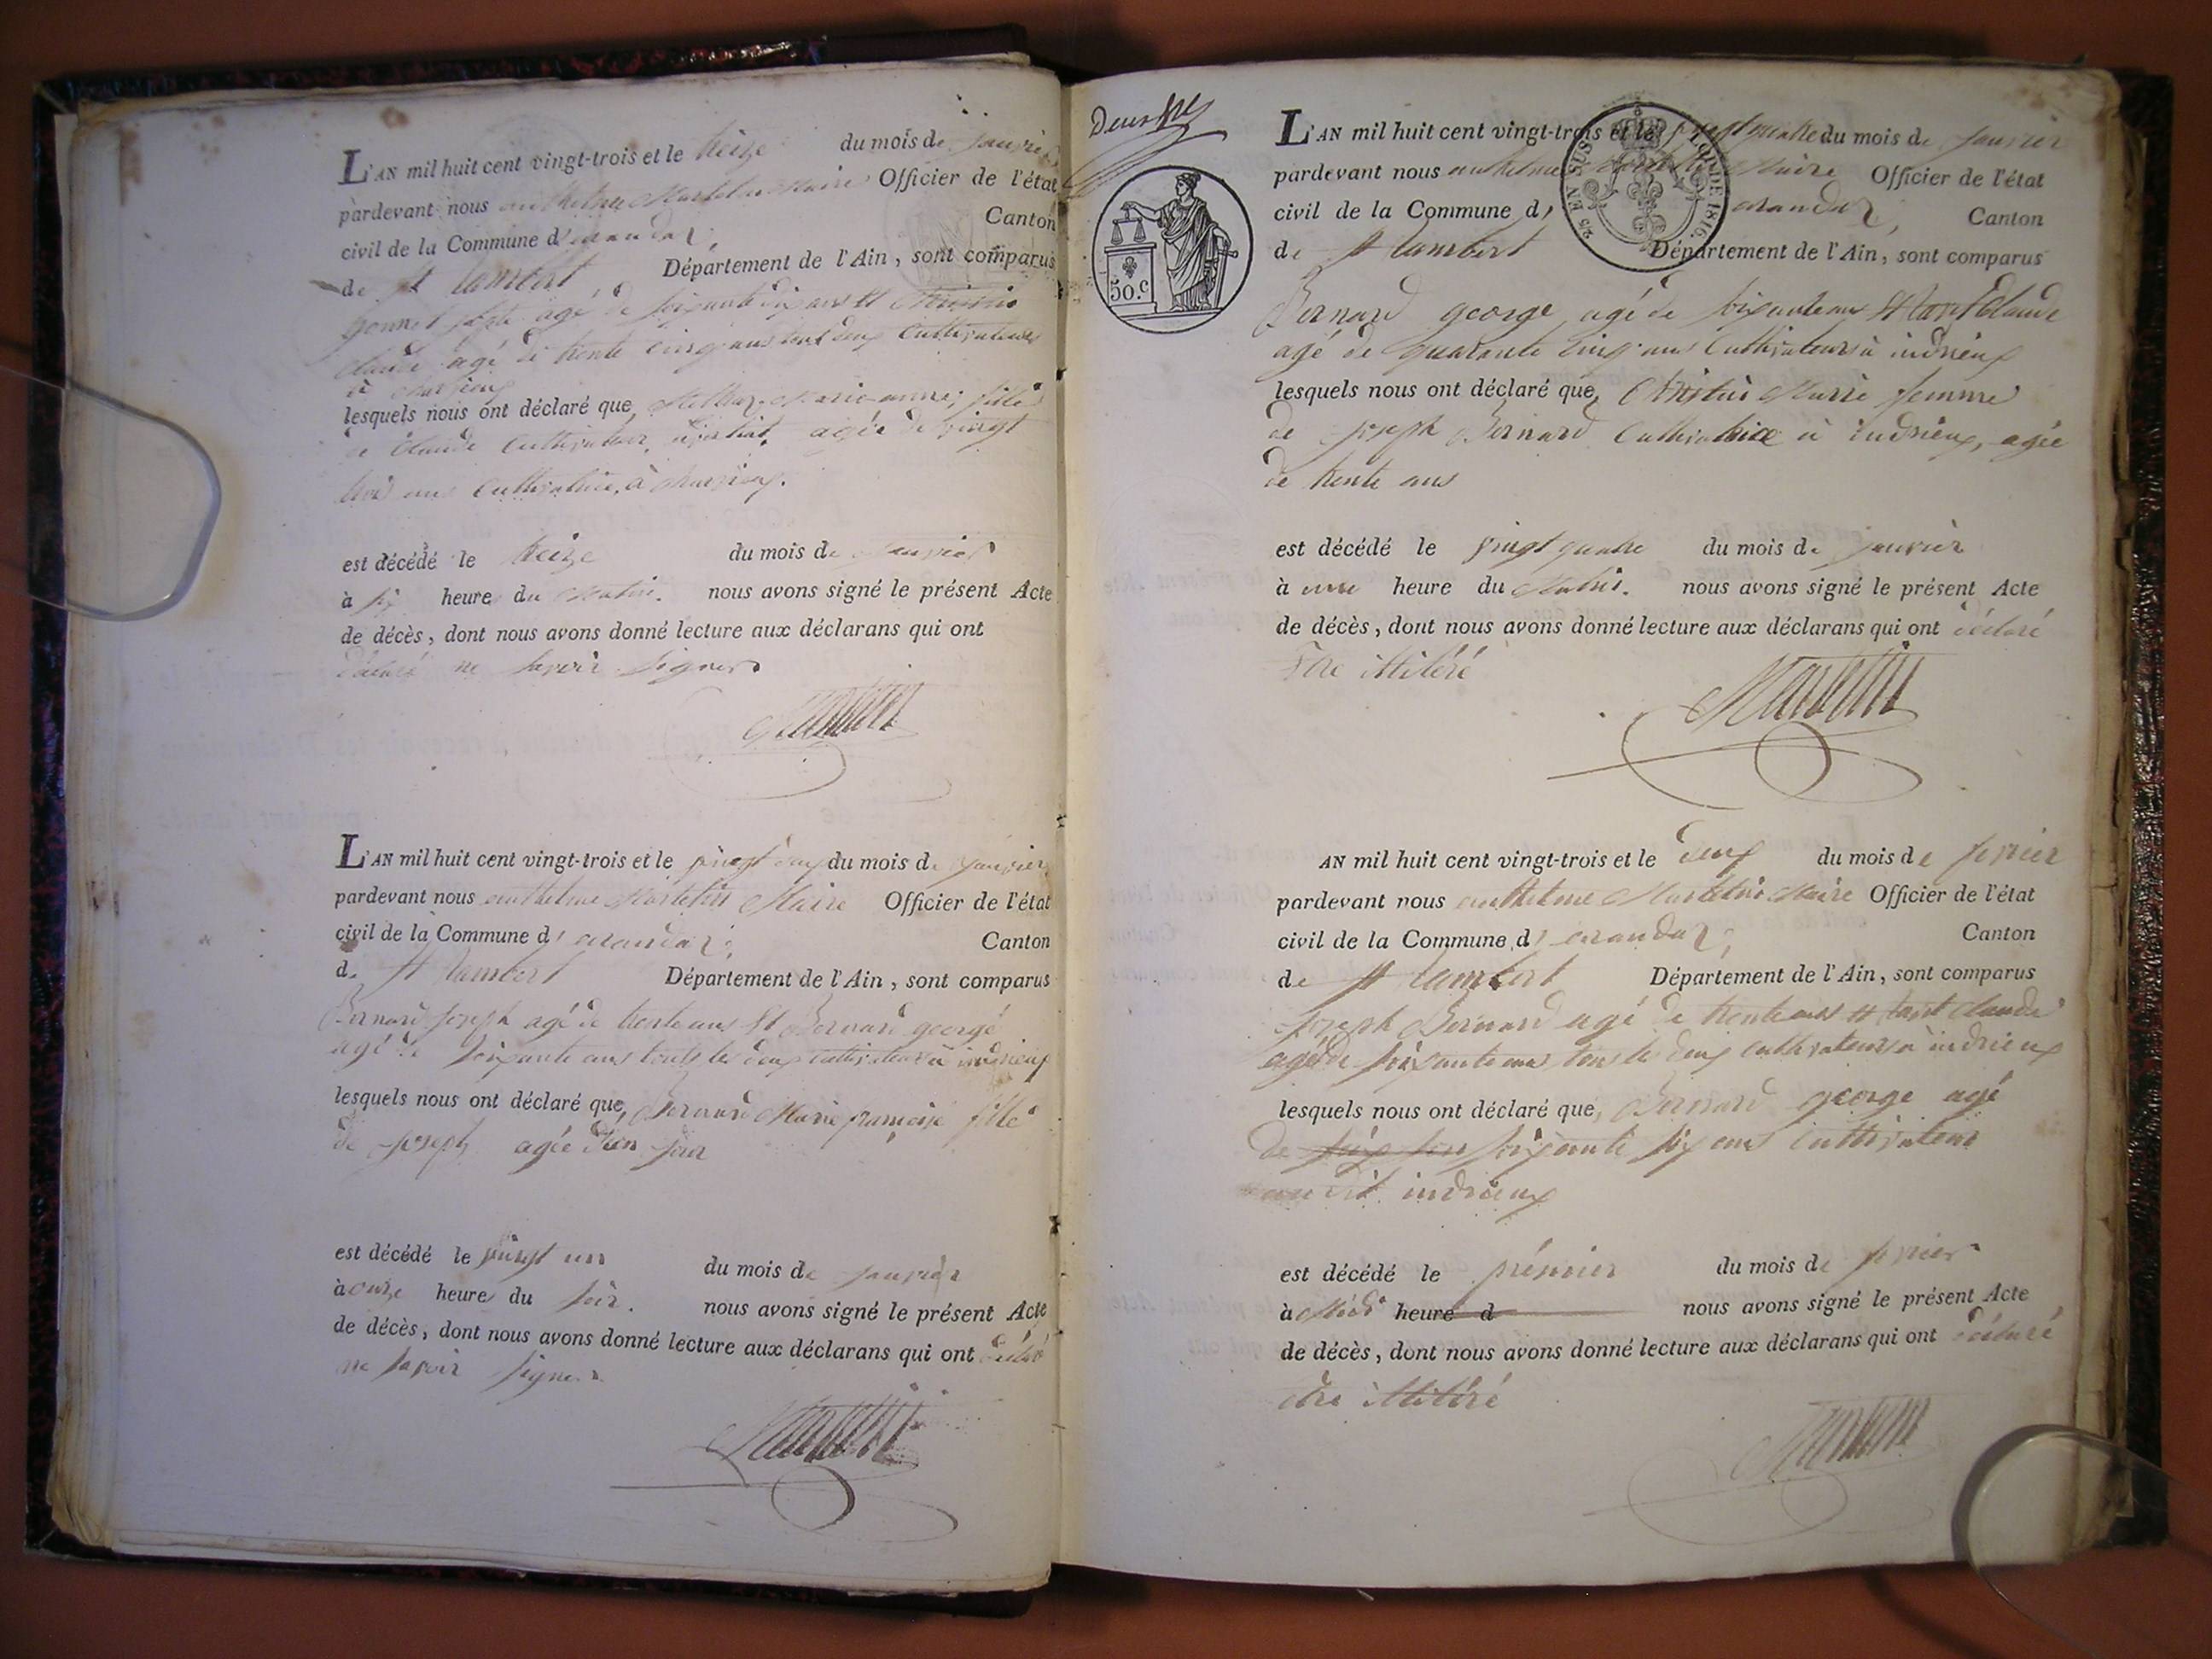 L'AN mil huit cent vingt-trois et le treize du mois de janvier
pardevant nous anthelme Martelin Maire Officier de l'état
civil de la Commune d'arandas, Canton
de St Rambert, Département de l'Ain, sont comparus
agé de soixante dix ans et
claude agé de trente cinq ans tous deux Cultivateurs
à
lesquels nous ont déclaré que, Marie anne, fille
de Claude Cultivateur, agée de vingt
trois ans Cultivatrice, à
est décédé le treize du mois de janvier
à six heure du Matin. nous avons signé le présent Acte
de décès, dont nous avons donné lecture aux déclarans qui ont
déclaré ne savoir signer
Martelin
L'AN mil huit cent vingt-trois et le vingt deux du mois de janvier
pardevant nous anthelme Martelin Maire Officier de l'état
civil de la Commune d'arandas, Canton
de St Rambert Département de l'Ain, sont comparus
Bernard Joseph agé de trente ans et Bernard george
agé de soixante ans touts les deux cultivateurs à indrieux
lesquels nous ont déclaré que, Bernard Marie francoise fille
de Joseph agée d'un jour
est décédé le vingt un du mois de janvier
à onze heure du soir. nous avons signé le présent Acte
de décès, dont nous avons donné lecture aux déclarans qui ont déclaré
ne savoir signer
Martelin
50.c
25 EN SUS
LOI DE 1816.
L'AN mil huit cent vingt-trois et le vingt quatre du mois de janvier
pardevant nous anthelme Martelin Maire Officier de l'état
civil de la Commune d'arandas, Canton
de St Rambert Département de l'Ain, sont comparus
Bernard george agé de soixante ans et Claude
agé de quarante cinq ans Cultivateurs à indrieux
lesquels nous ont déclaré que, Marie femme
de Joseph Bernard Cultivatrice à indrieux, agée
de trente ans
est décédé le vingt quatre du mois de janvier
à une heure du Matin. nous avons signé le présent Acte
de décès, dont nous avons donné lecture aux déclarans qui ont déclaré
Etre illitéré
Martelin
AN mil huit cent vingt-trois et le deux du mois de fevrier
pardevant nous anthelme Martelin Maire Officier de l'état
civil de la Commune d'arandas, Canton
de St Rambert Département de l'Ain, sont comparus
Joseph Bernard agé de trente ans et Claude
agé de soixante ans tous les deux cultivateurs à indrieux
lesquels nous ont déclaré que, Bernard george agé
de soixante six ans cultivateur
au dit indrieux
est décédé le prémier du mois de fevrier
à Midi heure d nous avons signé le présent Acte
de décès, dont nous avons donné lecture aux déclarans qui ont déclaré
etre illitéré
Martelin